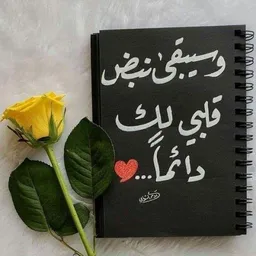 وسيبقىٰ نبض
قلبي لك
دائماً...